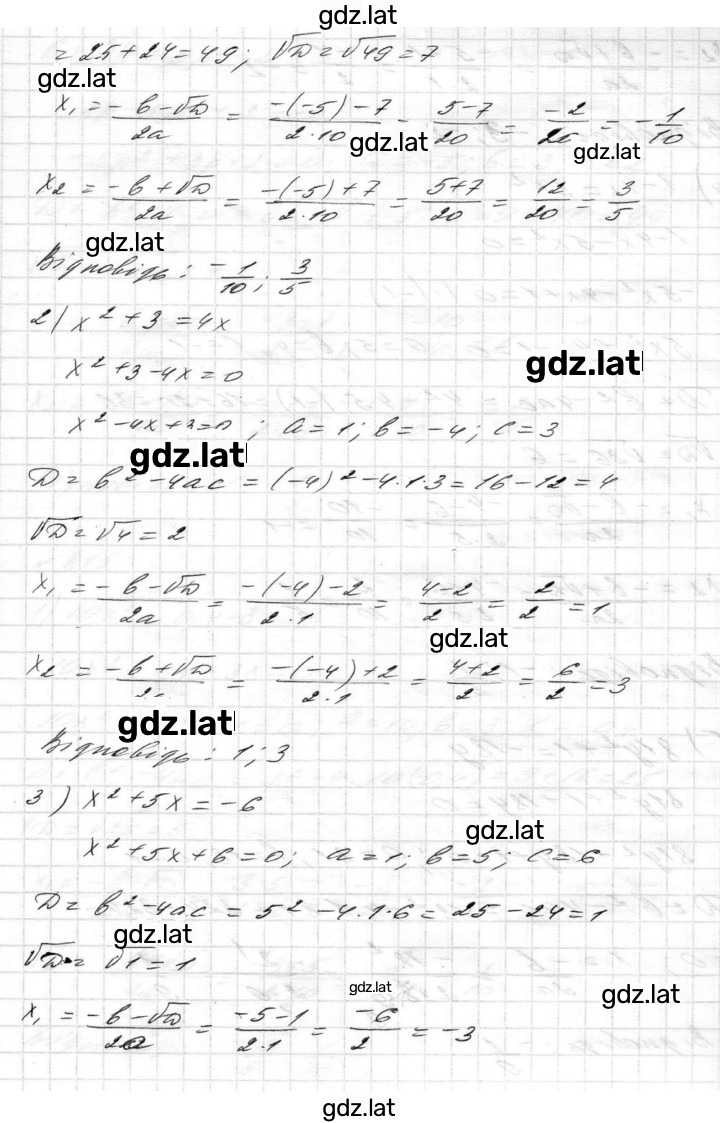 gdz.lat
= 25 + 24 = 49; √D = √49 = 7
gdz.lat
x₁ = (-b - √D)/2a = (-(-5) - 7)/(2·10) = (5-7)/20 = -2/20 = -1/10
gdz.lat
gdz.lat
x₂ = (-b + √D)/2a = (-(-5) + 7)/(2·10) = (5+7)/20 = 12/20 = 3/5
gdz.lat
Відповідь: -1/10; 3/5
2) x² + 3 = 4x
x² + 3 - 4x = 0
gdz.lat
x² - 4x + 3 = 0; a = 1; b = -4; c = 3
gdz.lat
D = b² - 4ac = (-4)² - 4·1·3 = 16 - 12 = 4
√D = √4 = 2
x₁ = (-b - √D)/2a = (-(-4) - 2)/(2·1) = (4-2)/2 = 2/2 = 1
gdz.lat
x₂ = (-b + √D)/2a = (-(-4) + 2)/(2·1) = (4+2)/2 = 6/2 = 3
gdz.lat
Відповідь: 1; 3
3) x² + 5x = -6
gdz.lat
x² + 5x + 6 = 0; a = 1; b = 5; c = 6
D = b² - 4ac = 5² - 4·1·6 = 25 - 24 = 1
gdz.lat
√D = √1 = 1
gdz.lat
gdz.lat
x₁ = (-b - √D)/2a = (-5 - 1)/(2·1) = -6/2 = -3
gdz.lat